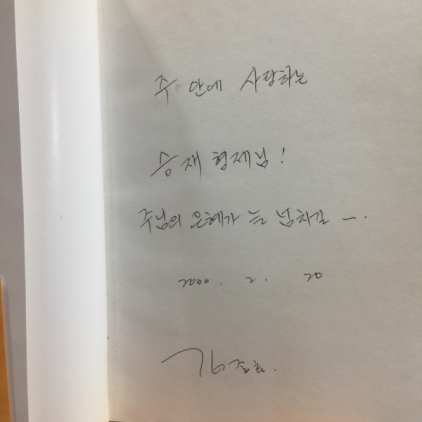 주 안에 사랑하는
승재 형제님!
주님의 은혜가 늘 넘치길 –.
2000. 2. 20